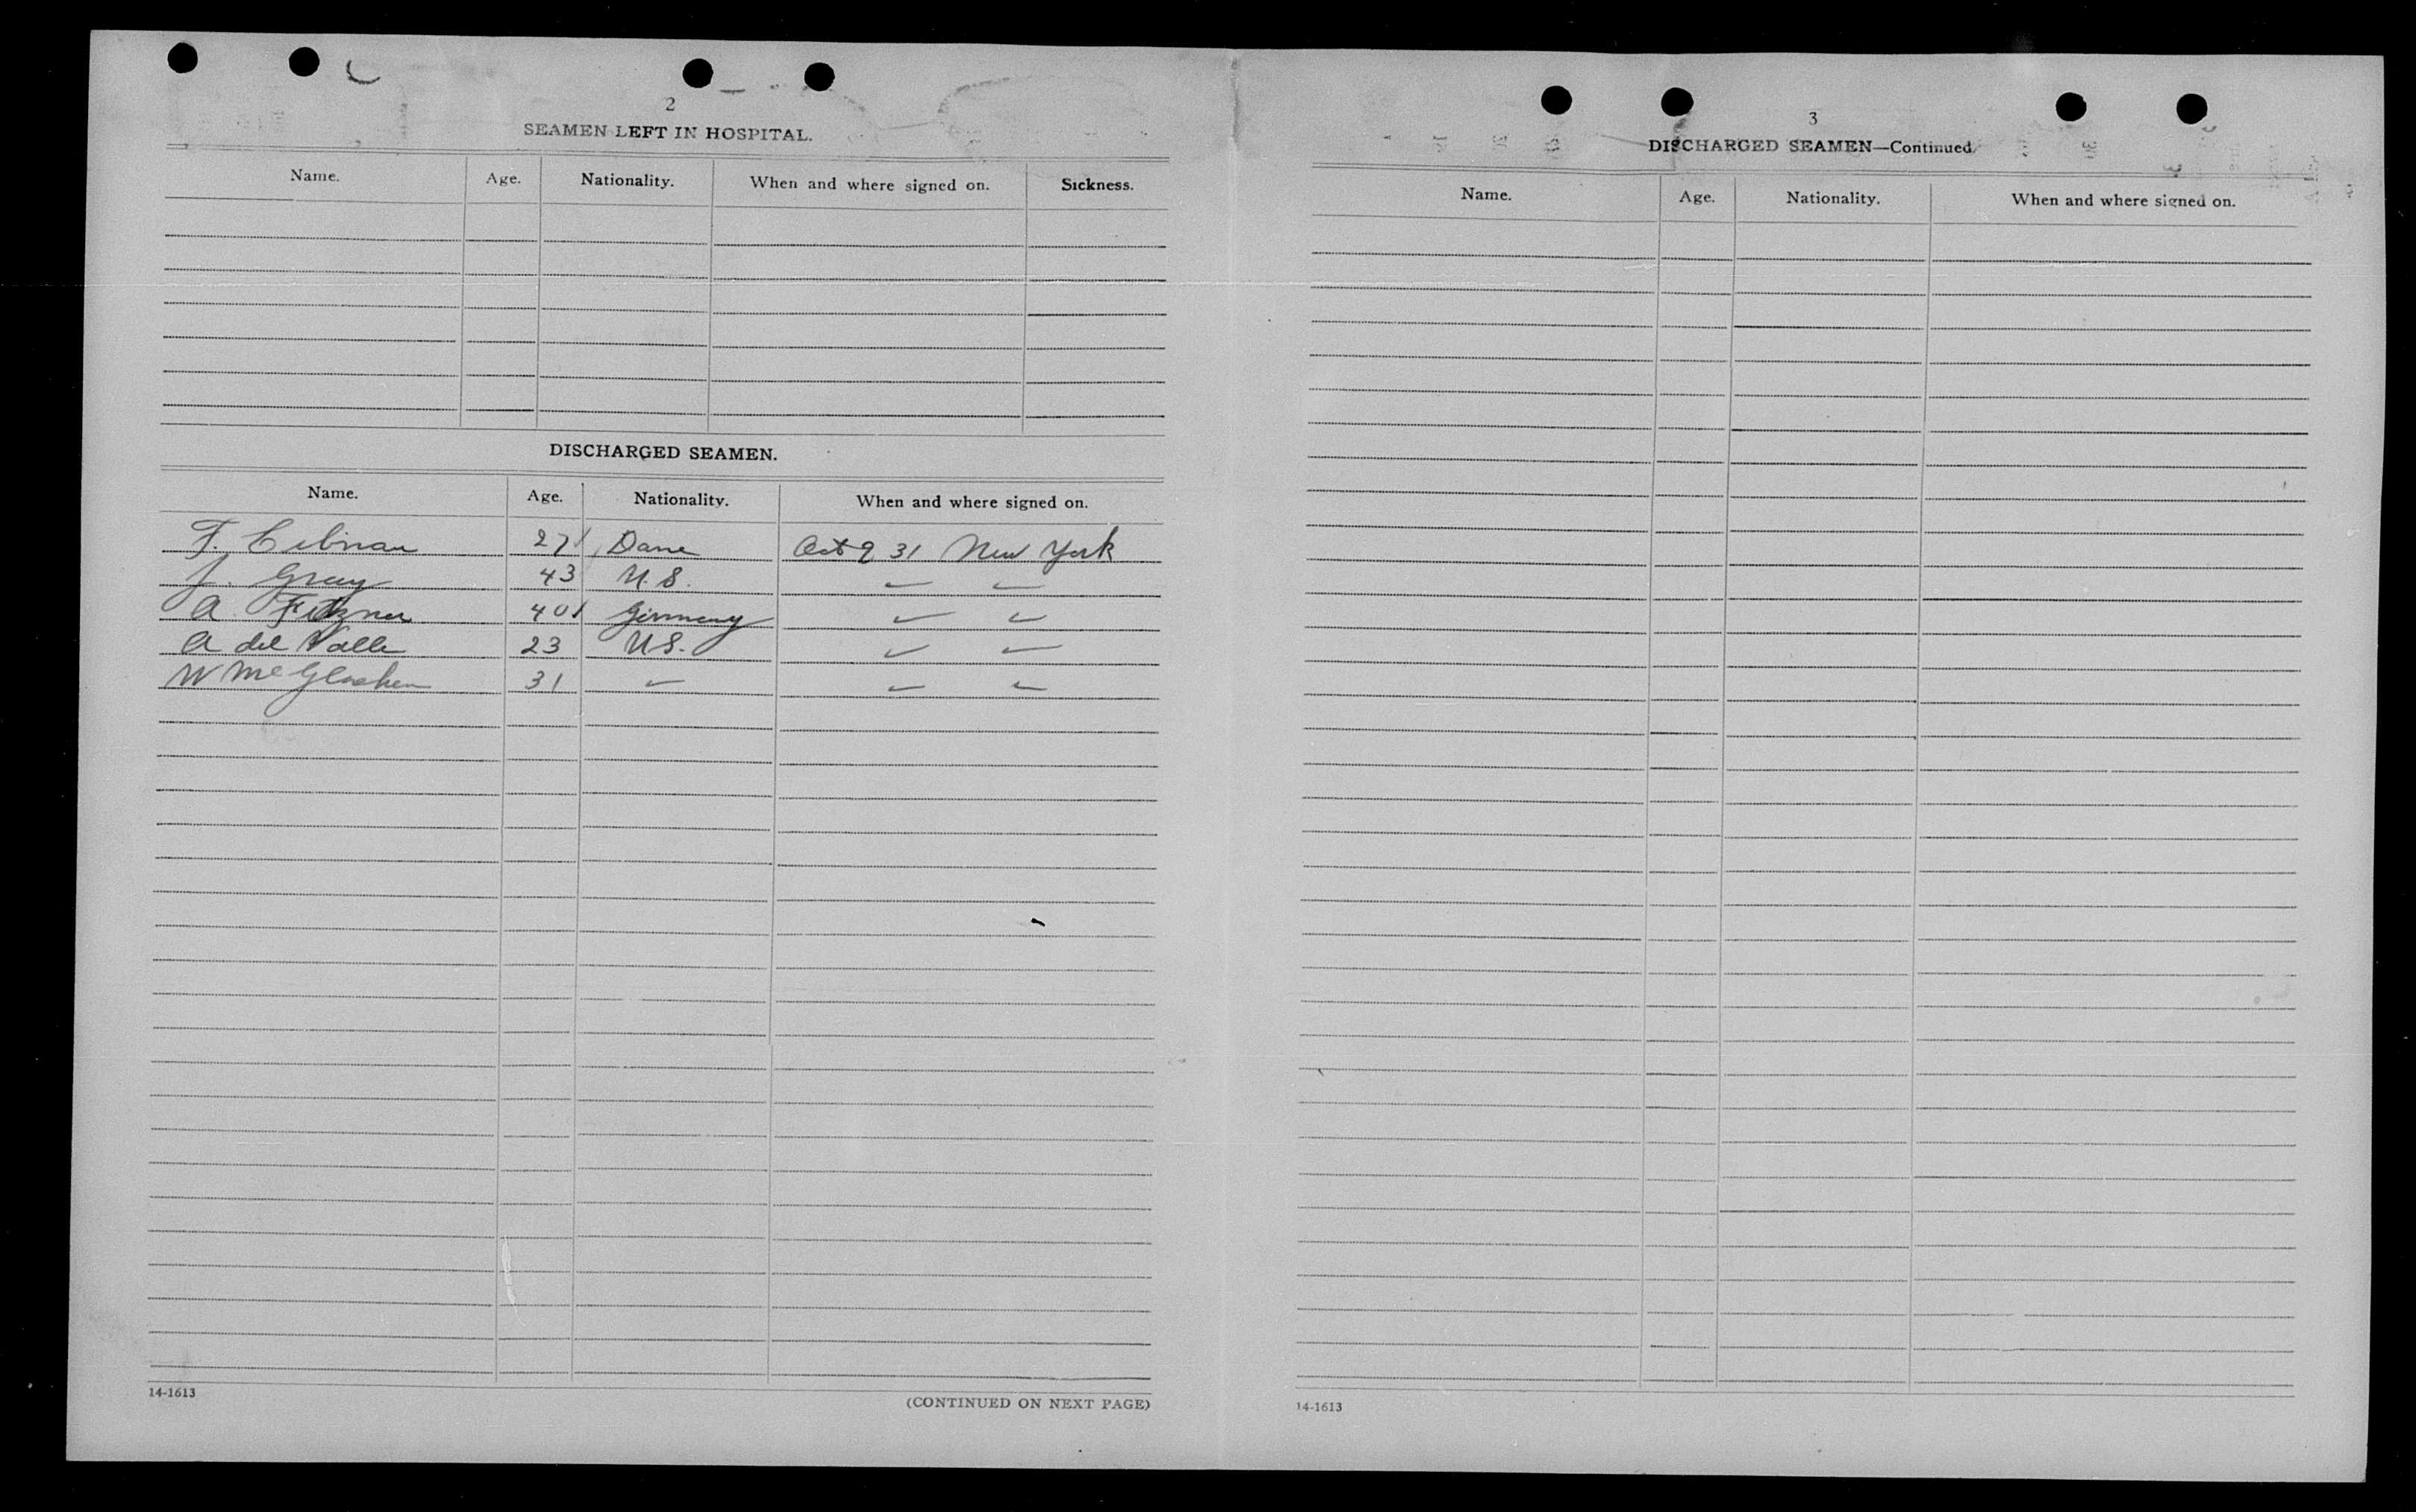 2
SEAMEN LEFT IN HOSPITAL.
Name. Age. Nationality. When and where signed on. Sickness.
DISCHARGED SEAMEN.
Name. Age. Nationality. When and where signed on.
F. 27 Dane Oct 9 31 New York
J. Gray 43 U.S.
A. Fitzner 40 Germany
A del Valle 23 U.S.
W 31
14-1613
(CONTINUED ON NEXT PAGE)
3
DISCHARGED SEAMEN—Continued
Name. Age. Nationality. When and where signed on.
14-1613